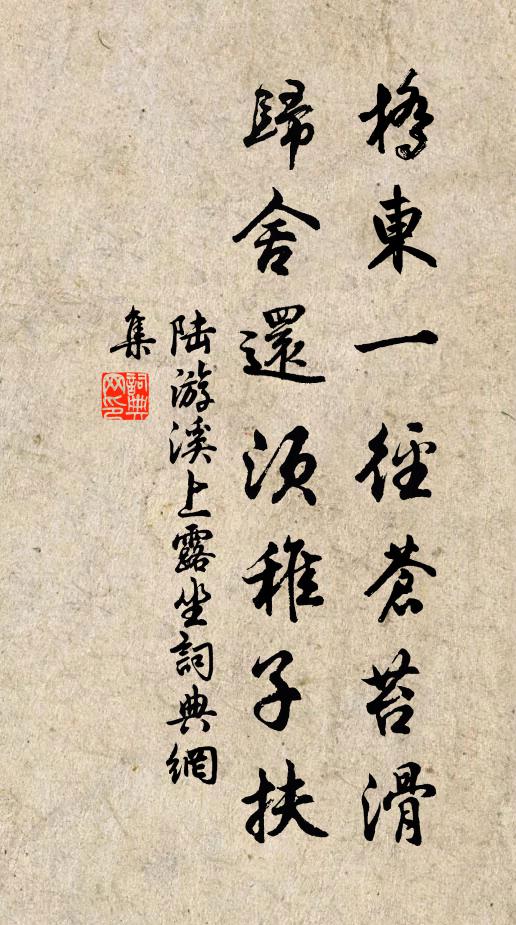 橋東一徑蒼苔滑
歸舍還須稚子扶
陸游溪上露坐詞典網
集
詞典
網印